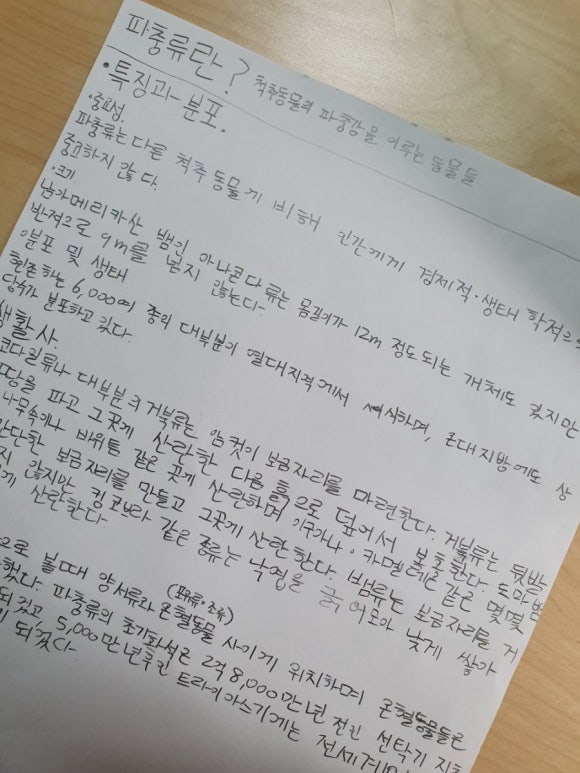 파충류란? 척추동물의 파충강을 이루는 동물들
· 특징과 분포.
· 중요성.
파충류는 다른 척추동물게 비해 인간게게 경제적·생태학적으로
중요하지 않다.
· 크기
남아메리카산 뱀인 아나콘다류는 몸길이가 12m 정도되는 개체도 있지만
반적으로 9m를 넘지 않는다.
· 분포 및 생태
현존하는 6,000여 종의 대부분이 열대지역에서 서식하며, 온대지방에도 상
당수가 분포하고 있다.
생활사
코다일류나 대부분의 거북류는 암컷이 보금자리를 마련한다. 거북류는 뒷발
땅을 파고 그곳게 산란한 다음 흙으로 덮어서 보호한다. 도마뱀
나무속이나 바위틈 같은 곳게 산란하며 이구아나·카멜레온 같은 몇몇
간단한 보금자리를 만들고 그곳게 산란한다. 뱀류는 보금자리를 거
지 않지만 킹코브라 같은 종류는 낙엽을 긁어모아 낮게 쌓아
게 산란한다
으로 볼때 양서류와 온혈동물(포유류·조류) 사이게 위치하며 온혈동물들은
했다. 파충류의 초기화석은 2억 8,000만년 전인 석탄기 지
되었고 5,000만년후인 트라이아스기에는 전세계
게 되었다.